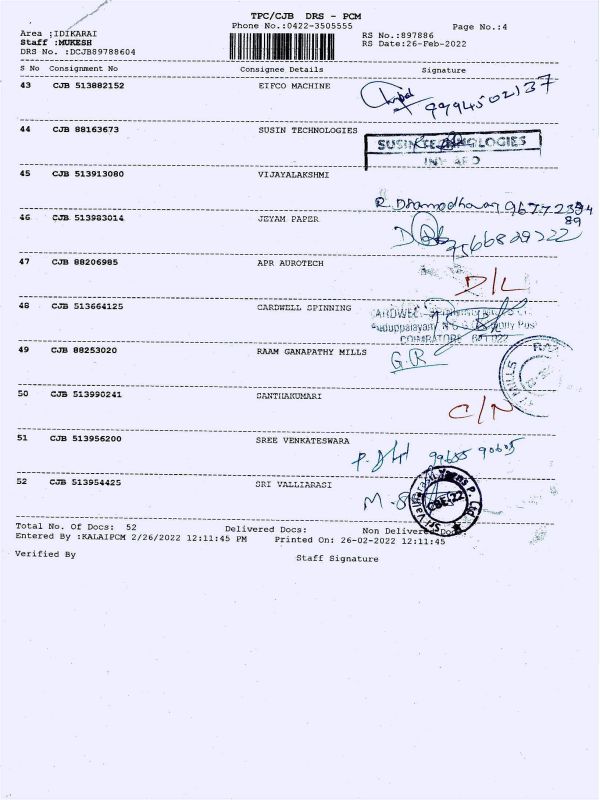 TPC/CJB DRS - PCM
Phone No.:0422-3505555 Page No.:4
Area :IDIKARAI RS No.:897886
Staff :MUKESH RS Date:26-Feb-2022
DRS No. :DCJB89788604
S No Consignment No Consignee Details Signature
43 CJB 513882152 EIFCO MACHINE
9994502137
44 CJB 88163673 SUSIN TECHNOLOGIES
SUSIN TECHNOLOGIES
45 CJB 513913080 VIJAYALAKSHMI
R. Dhamodharan
46 CJB 513983014 JEYAM PAPER
9566829222
47 CJB 88206985 APR AUROTECH
D/L
48 CJB 513664125 CARDWELL SPINNING
COIMBATORE
49 CJB 88253020 RAAM GANAPATHY MILLS
G.R
MILLS
50 CJB 513990241 SANTHAKUMARI
C/N
51 CJB 513956200 SREE VENKATESWARA
99655 90605
52 CJB 513954425 SRI VALLIARASI
M.S
Total No. Of Docs: 52 Delivered Docs: Non Delivered Docs:
Entered By :KALAIPCM 2/26/2022 12:11:45 PM Printed On: 26-02-2022 12:11:45
Verified By Staff Signature